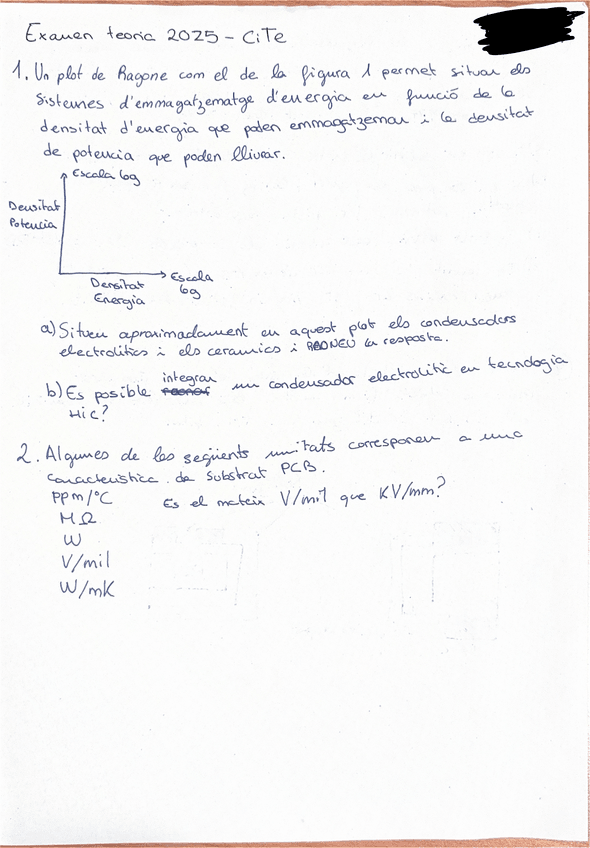 Examen teoria 2025 - CiTe
1. Un plot de Ragone com el de la figura 1 permet situar els
sistemes d'emmagatzematge d'energia en funció de la
densitat d'energia que poden emmagatzemar i la densitat
de potencia que poden lliurar.
Escala log
Densitat
Potencia
Densitat
Energia
Escala
log
a) Situeu aproximadament en aquest plot els condensadors
electrolitics i els ceramics i RAONEU la resposta.
b) Es posible integrar un condensador electrolitic en tecnologia
HiC?
2. Algunes de les següents unitats corresponen a una
caracteristica de substrat PCB.
ppm/°C
Es el mateix V/mil que KV/mm?
MΩ
W
V/mil
W/mK